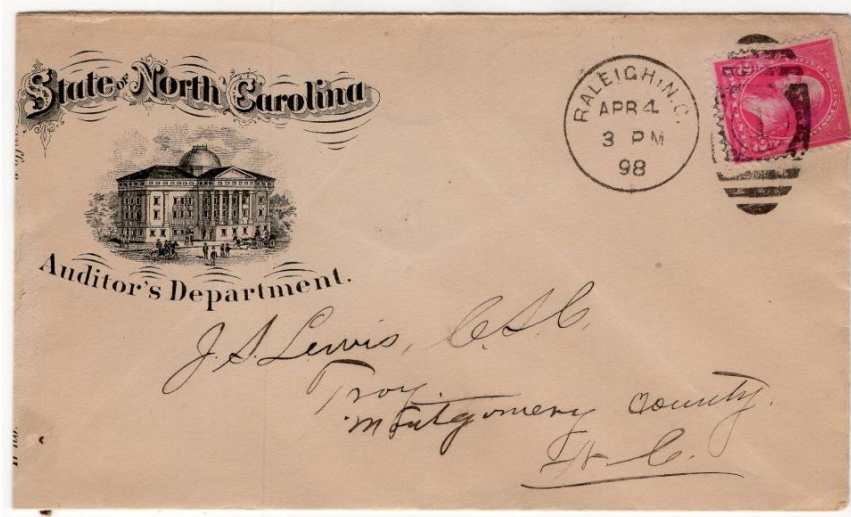 State of North Carolina
Auditor's Department.
RALEIGH, N.C.
APR 4
3 PM
98
J. S. Lewis, C.S.C.
Troy.
Montgomery County.
N. C.